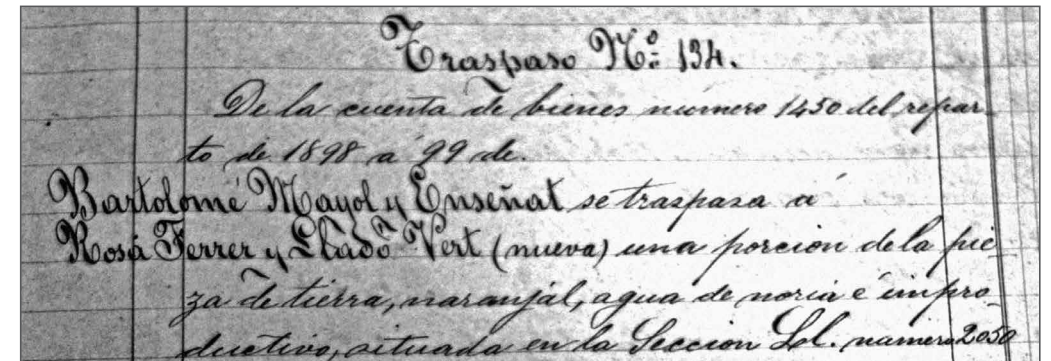 Traspaso Nº 134.
De la cuenta de bienes número 1450 del repar-
to de 1898 a 99 de.
Bartolomé Mayol y Enseñat se traspasa á
Rosa Ferrer y Lladó Vert (nueva) una porcion de la pie
za de tierra, naranjal, agua de noria é impro-
ductivo, situada en la Seccion Ll. numero 2050